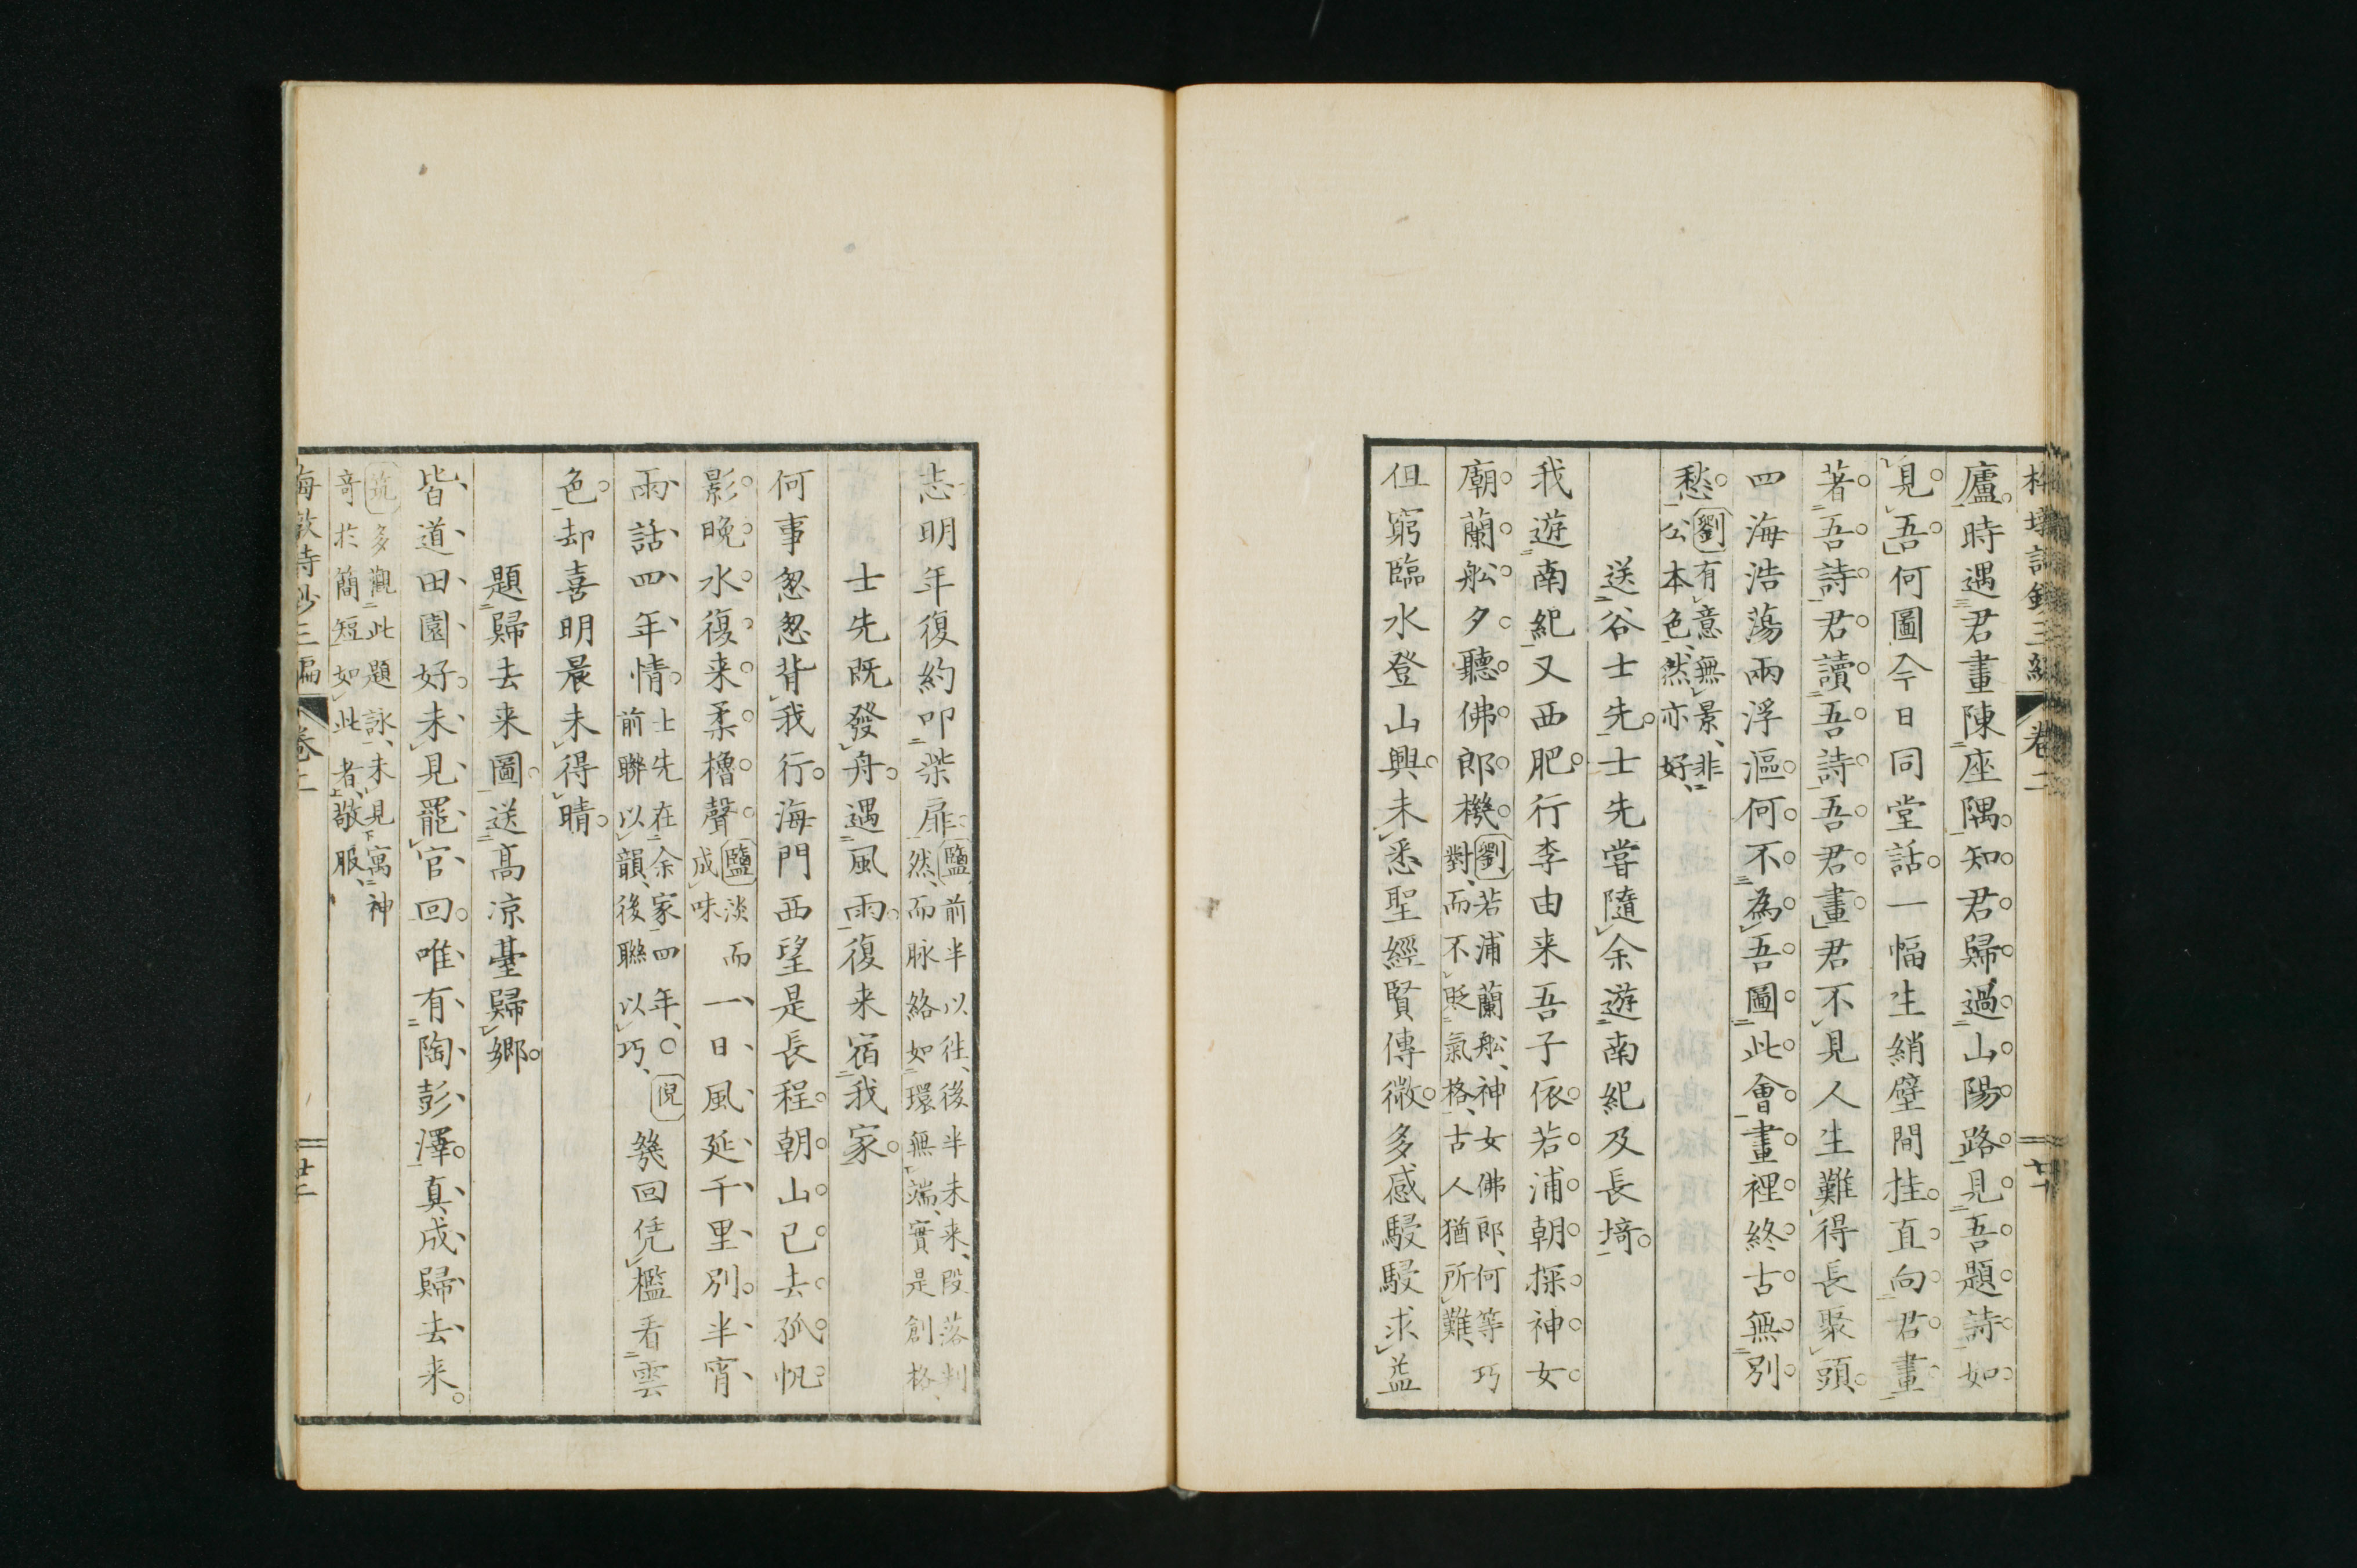 梅墩詩鈔三編 卷二
廬時遇君畫陳座隅知君歸過山陽路見吾題詩如
見吾何圖今日同堂話一幅生綃壁間挂直向君畫
著吾詩君讀吾詩吾君畫君不見人生難得長聚頭
四海浩蕩兩浮漚何不為吾圖此會畫裡終古無別
愁 劉 有意無景、非
公本色、然亦好、
送谷士先士先嘗隨余遊南紀及長埼
我遊南紀又西肥行李由来吾子依若浦朝探神女
廟蘭舩夕聽佛郎機 劉 若浦蘭舩、神女佛郎、何等巧
對、而不貶氣格、古人猶所難、
但窮臨水登山興未悉聖經賢傳微多感駸駸求益
志明年復約叩柴扉 鹽 前半以往、後半未来、段落判
然、而脉絡如環無端、實是創格、
士先既發舟遇風雨復来宿我家
何事怱怱背我行海門西望是長程朝山已去孤帆
影晚水復来柔櫓聲 鹽 淡而
成味 一日風延千里別半宵
雨話四年情 士先在余家四年、○
前聯以韻、後聯以巧、 倪 幾回凭檻看雲
色却喜明晨未得晴
題歸去来圖送高凉臺歸郷
皆道田園好未見罷官回唯有陶彭澤真成歸去来
筑 多觀此題詠、未見寓神
奇於簡短如此者、敬服、
梅墩詩鈔三編 卷二 廿二